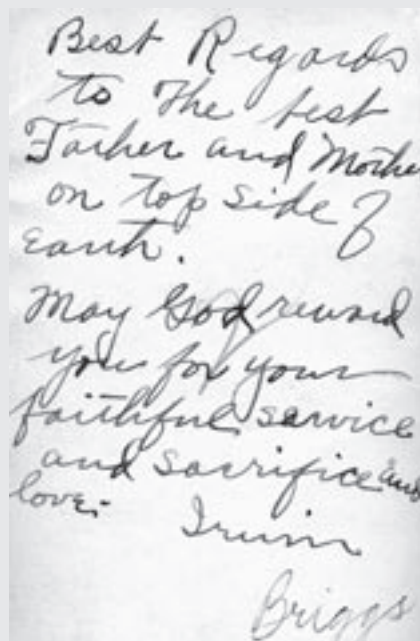 Best Regards
to the best
Father and Mother
on top side of
earth.
May God reward
you for your
faithful service
and sacrifice and
love.
Irvin
Briggs